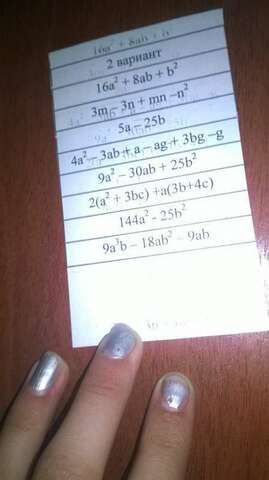 16a² + 8ab + b²
2 вариант
16a² + 8ab + b²
3m – 3n + mn –n²
5a – 25b
4a² – 3ab + a – ag + 3bg –g
9a² – 30ab + 25b²
2(a² + 3bc) +a(3b+4c)
144a² - 25b²
9a³b – 18ab² – 9ab